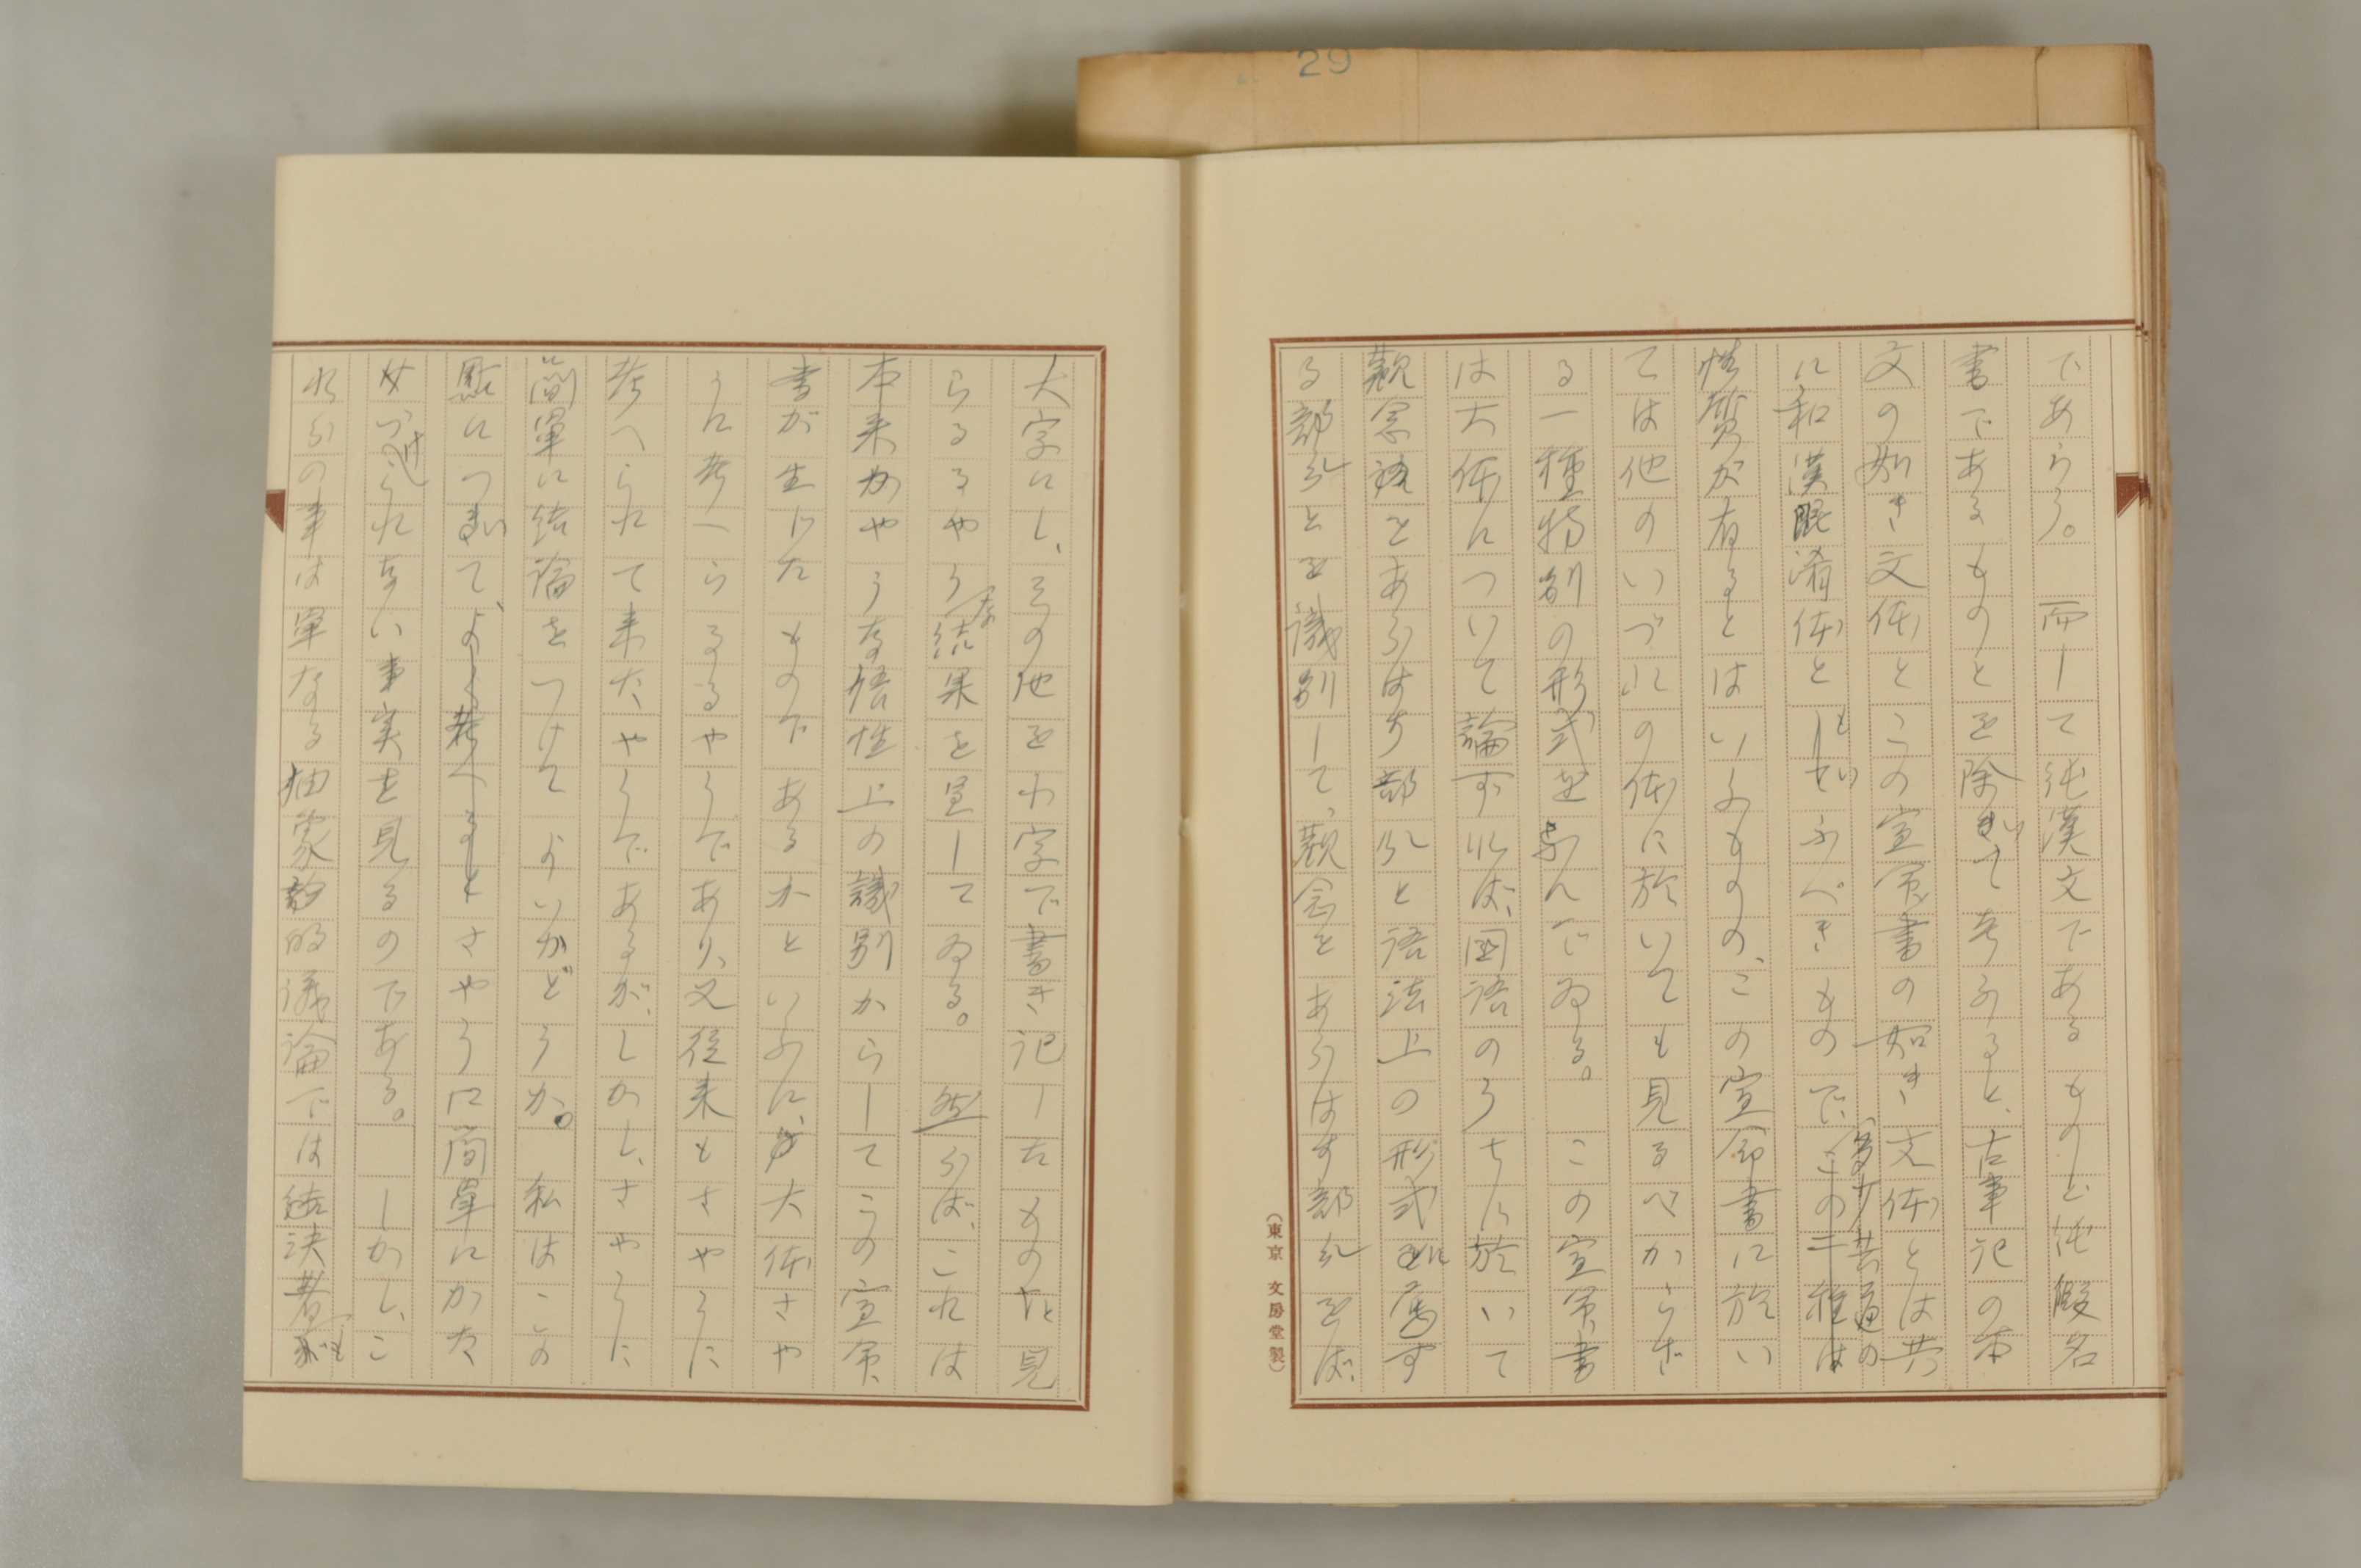 29
であらう。而して純漢文であるものと純假名
書であるものとを除いて考ふると、古事記の本
文の如き文体とこの宣命書の如き文体とは共
に和漢混淆体ともいふべきもので、多少共通の
性質が有るとはいふものの、この宣命書に於い
ては他のいづれの体に於いても見るべからざ
る一種特別の形式を帯んでゐる。この宣命書
は大体について論ずれば、国語のうちに於いて
觀念語をあらはす部分と語法上の形式に属す
る部分とを識別して、觀念をあらはす部分をば、
（東京 文房堂製）
大字にし、その他をわ字で書き記したものだと見
らるるやうな結果を呈してゐる。然らば、これは
本来かやうな語性上の識別からしてこの宣命
書が生じたものであるかといふに、大体さや
うに考へらるるやうであり、又従来もさやうに
考へられて来たやうであるが、しかし、さやうに
簡單に結論をつけてよいかどうか。私はこの
點について、さやうに簡單にかた
づけられない事実を見るのである。しかし、こ
れらの事は単なる抽象的議論では決着も